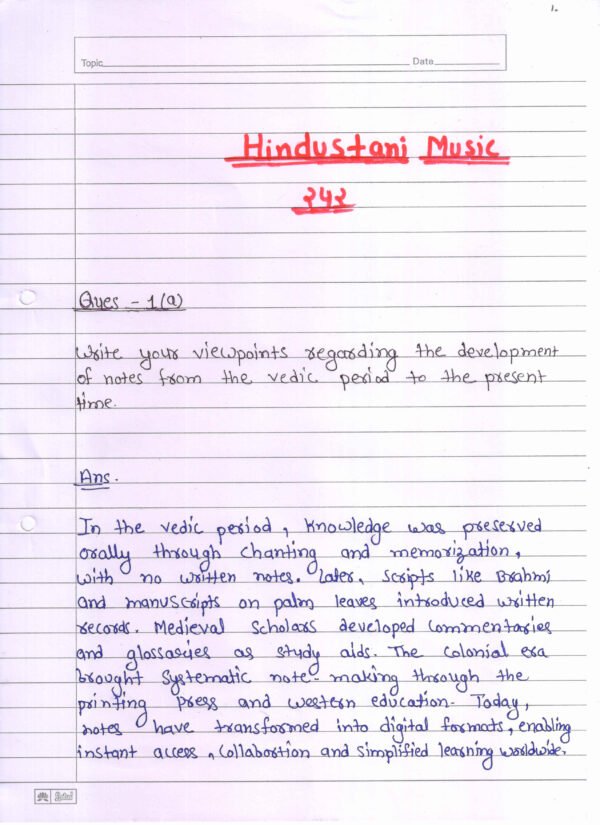 1.
Topic Date
Hindustani Music
२५२
Ques - 1(a)
Write your viewpoints regarding the development
of notes from the vedic period to the present
time.
Ans.
In the vedic period, knowledge was preserved
orally through chanting and memorization,
with no written notes. Later, scripts like Brahmi
and manuscripts on palm leaves introduced written
records. Medieval Scholars developed Commentaries
and glossaries as study aids. The Colonial era
brought systematic note-making through the
printing press and western education. Today,
notes have transformed into digital formats, enabling
instant access, Collabortion and simplified learning worldwide.